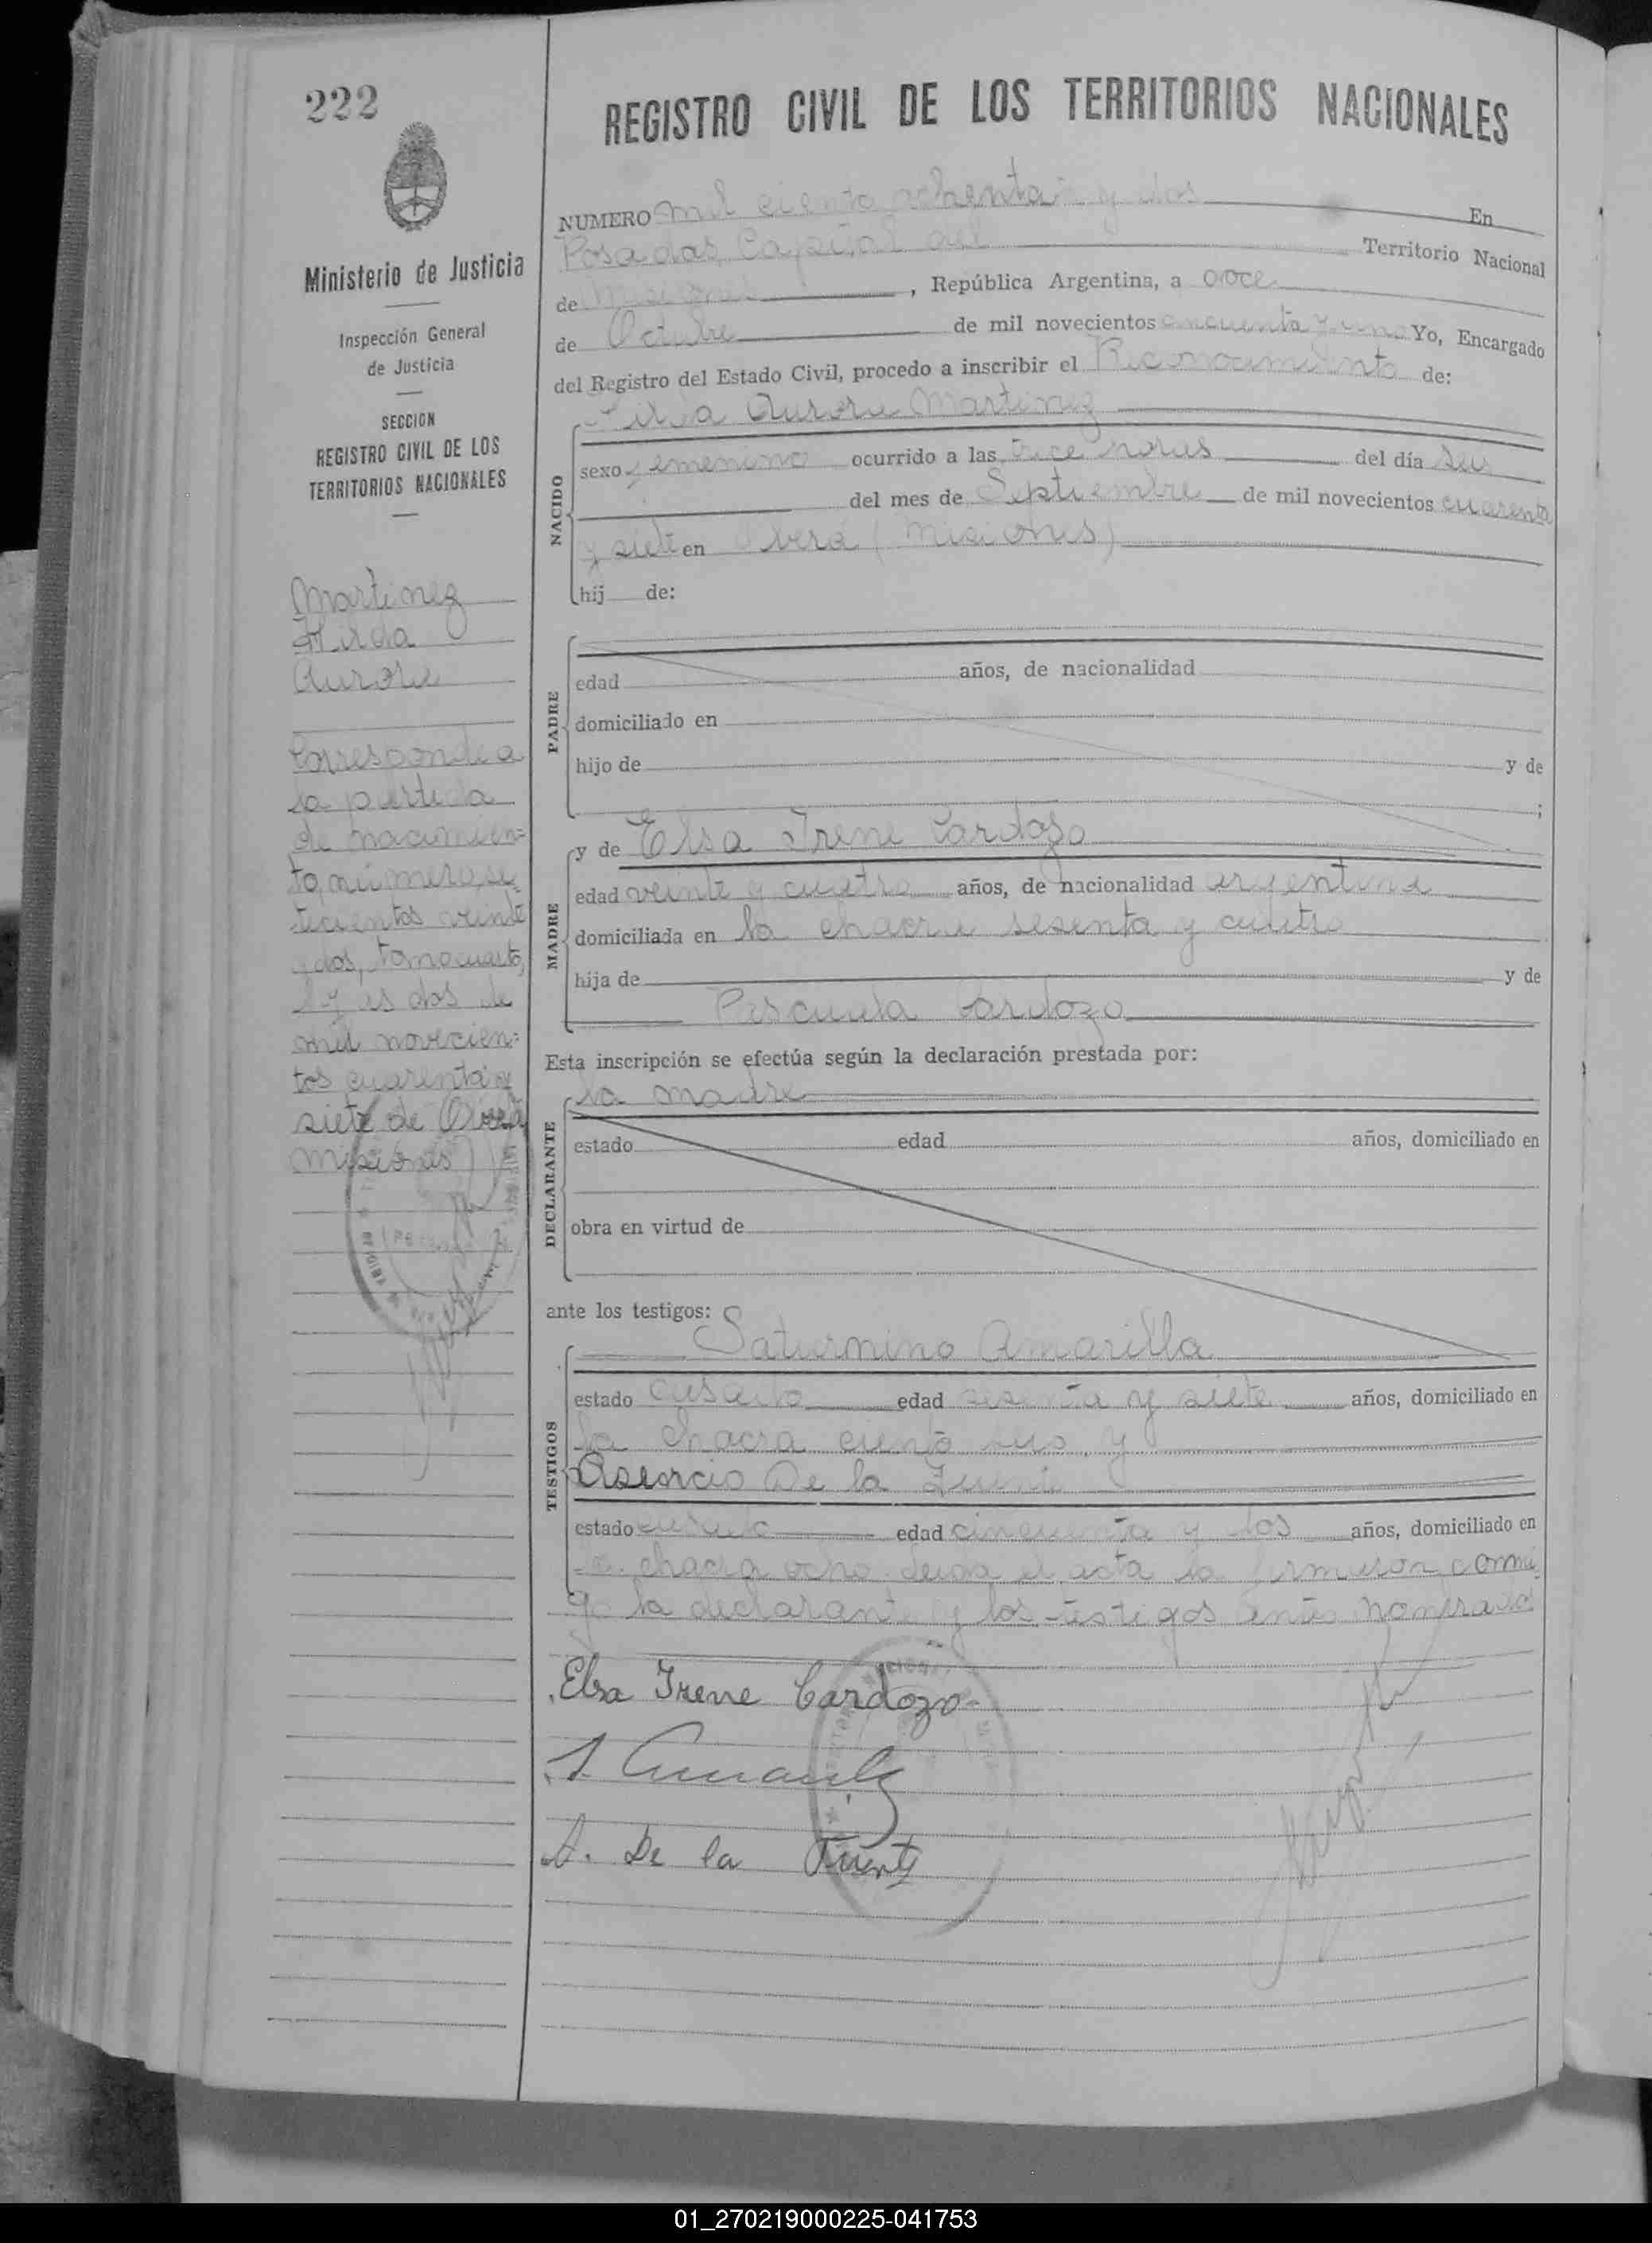 222
Ministerio de Justicia
Inspección General
de Justicia
SECCION
REGISTRO CIVIL DE LOS
TERRITORIOS NACIONALES
Martinez
Hirda
Aurora
Corresponde a
la partida
de nacimien=
to numero se
tecientos veinte
y dos, tomo cuarto,
de
mil novecien=
tos cuarenta y
siete de Oberá
Misiones)
REGISTRO CIVIL DE LOS TERRITORIOS NACIONALES
NUMERO mil ciento ochenta y dos En
Posadas Capital del Territorio Nacional
de Misiones, República Argentina, a doce
de Octubre de mil novecientos cincuenta y uno Yo, Encargado
del Registro del Estado Civil, procedo a inscribir el Reconocimiento de:
Aurora Martinez
NACIDO
sexo femenino ocurrido a las trece horas del día seis
del mes de Septiembre de mil novecientos cuarenta
y siete en Overa (Misiones)
hij de:
PADRE
edad años, de nacionalidad
domiciliado en
hijo de y de
;
MADRE
y de Elsa Irene Cardozo
edad veinte y cuatro años, de nacionalidad argentina
domiciliada en la chacra sesenta y cuatro
hija de y de
Pascuala Cardozo
Esta inscripción se efectúa según la declaración prestada por:
la madre
DECLARANTE
estado edad años, domiciliado en
obra en virtud de
ante los testigos:
Saturnino Amarilla
TESTIGOS
estado casado edad sesenta y siete años, domiciliado en
la chacra ciento seis y
Asencio De la Fuente
estado casado edad cincuenta y dos años, domiciliado en
la chacra ocho. Leida el acta la firmaron conmi
go la declarante y los testigos antes nombrados
Elsa Irene Cardozo
S. Amarilla
A. De la Fuente
01_270219000225-041753